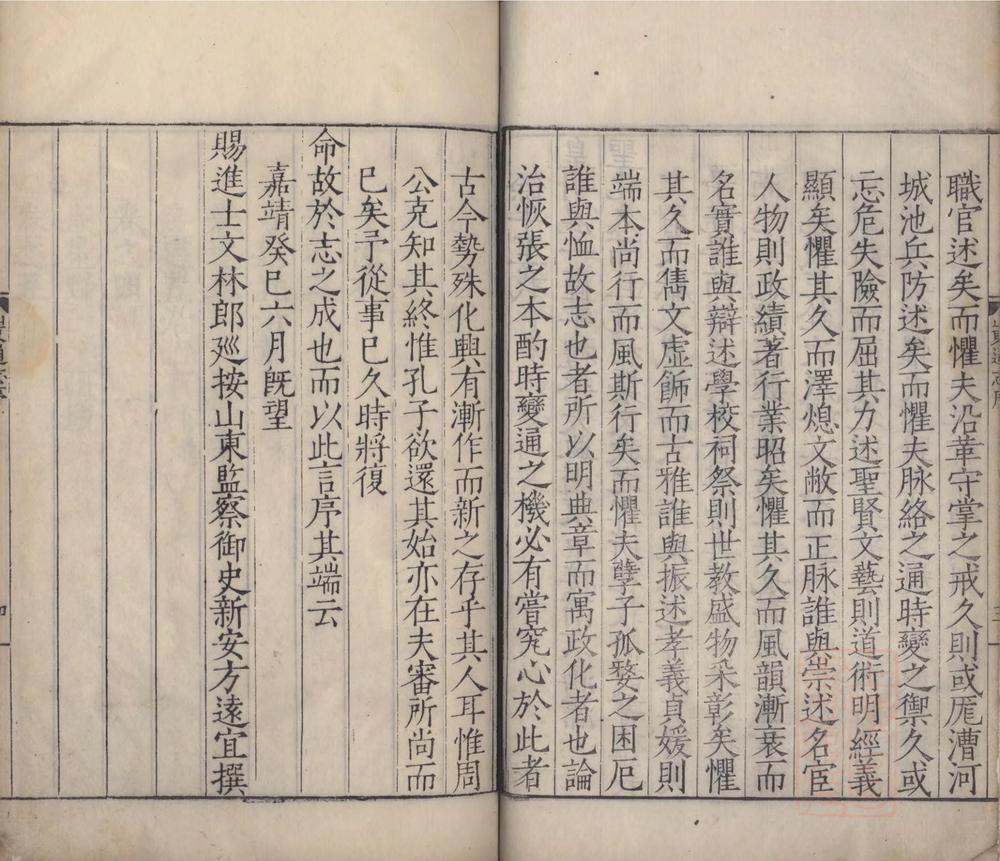 職官述矣而懼夫沿革守掌之戒久則或厖漕河
城池兵防述矣而懼夫脉絡之通時變之禦久或
忘危失險而屈其力述聖賢文藝則道術明經義
顯矣懼其久而澤熄文敝而正脉誰與崇述名宦
人物則政績著行業昭矣懼其久而風韻漸衰而
名實誰與辯述學校祠祭則世教盛物采彰矣懼
其久而雋文虛飾而古雅誰與振述孝義貞媛則
端本尚行而風斯行矣而懼夫孽子孤嫠之困厄
誰與恤故志也者所以明典章而寓政化者也論
治恢張之本酌時變通之機必有嘗究心於此者
古今勢殊化興有漸作而新之存乎其人耳惟周
公克知其終惟孔子欲還其始亦在夫審所尚而
已矣予從事已久時將復
命故於志之成也而以此言序其端云
嘉靖癸巳六月旣望
賜進士文林郎廵按山東監察御史新安方遠宜撰